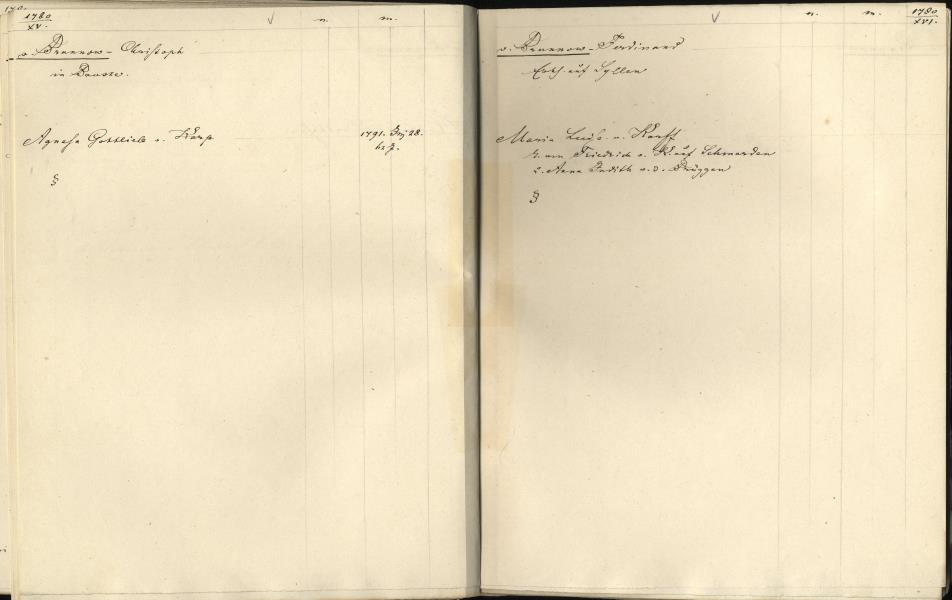 1780
XV.
n.
m.
v. Brunnow - Christoph
in Bauske.
Agnesa Gottlieb v. Korff
1791. 28.
§
n.
m.
1780
XVI.
v. Brunnow - Ferdinand
Erbh. auf Syllen
Maria Luis. v. Korff
Friedrich v. K. auf Schmarden
2. Anna Judith v. d. Brüggen
§